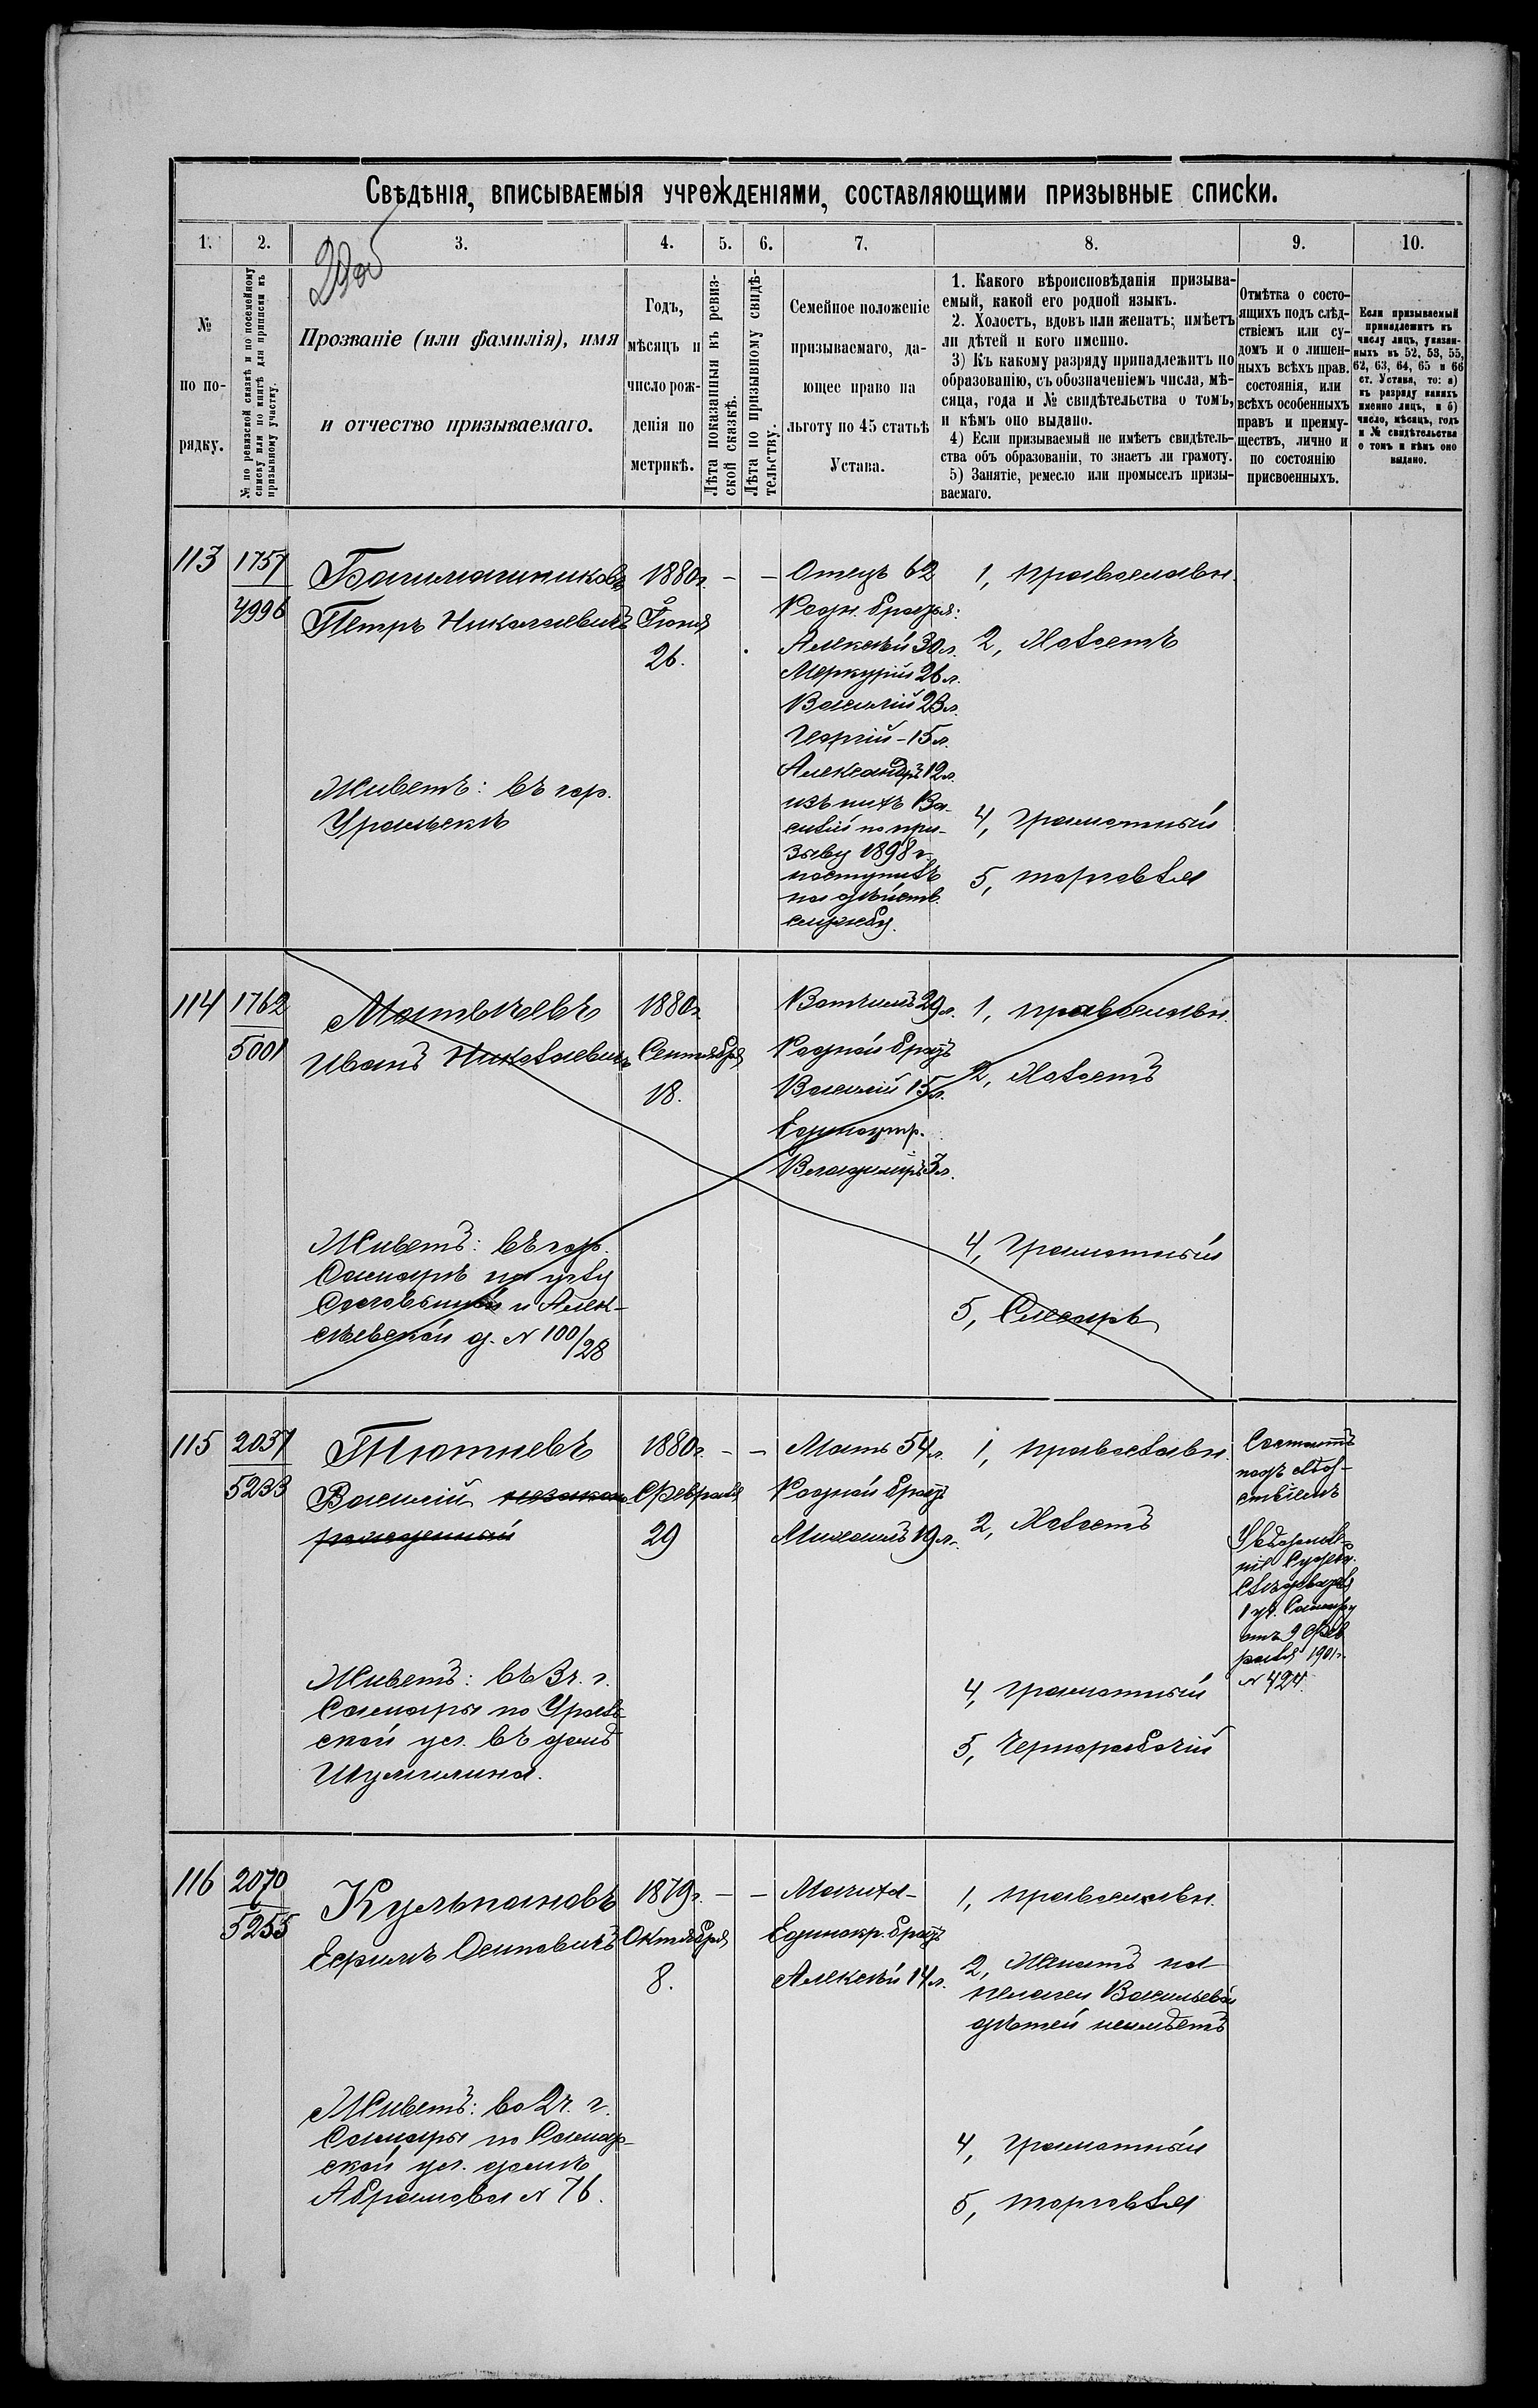 Свѣдѣнія, вписываемыя учрежденіями, составляющими призывные списки.
1.
2.
3.
4.
5.
6.
7.
8.
9.
10.
№
по по-
рядку.
№ по ревизской сказкѣ и по посемейному
списку или по книгѣ для приписки къ
призывному участку.
Прозваніе (или фамилія), имя
и отчество призываемаго.
Годъ,
мѣсяцъ и
число рож-
денія по
метрикѣ.
Лѣта показанныя въ ревиз-
ской сказкѣ.
Лѣта по призывному свидѣ-
тельству.
Семейное положеніе
призываемаго, да-
ющее право на
льготу по 45 статьѣ
Устава.
1. Какого вѣроисповѣданія призыва-
емый, какой его родной языкъ.
2. Холостъ, вдовъ или женатъ; имѣетъ
ли дѣтей и кого именно.
3) Къ какому разряду принадлежитъ по
образованію, съ обозначеніемъ числа, мѣ-
сяца, года и № свидѣтельства о томъ,
и кѣмъ оно выдано.
4) Если призываемый не имѣетъ свидѣтель-
ства объ образованіи, то знаетъ ли грамоту.
5) Занятіе, ремесло или промыселъ призы-
ваемаго.
Отмѣтка о состо-
ящихъ подъ слѣд-
ствіемъ или су-
домъ и о лишен-
ныхъ всѣхъ прав.
состоянія, или
всѣхъ особенныхъ
правъ и преиму-
ществъ, лично и
по состоянію
присвоенныхъ.
Если призываемый
принадлежитъ къ
числу лицъ, указан-
ныхъ въ 52, 53, 55,
62, 63, 64, 65 и 66
ст. Устава, то: а)
къ разряду какихъ
именно лицъ, и б)
число, мѣсяцъ, годъ
и № свидѣтельства
о томъ и кѣмъ оно
выдано.
113
1757
4996
Башмашниковъ
Петръ Николаевичъ
Живетъ: въ гор.
Уральскѣ
1880г.
Іюня
26.
Отецъ 62
Родн. братья:
Алексѣй 30 л.
Меркурій 26 л.
Василій 23 л.
Георгій - 15 л.
Александръ 12 л.
изъ нихъ Ва-
силій по при-
зыву 1898 г.
поступилъ
на дѣйств.
службу.
1, православн.
2, Холостъ
4, грамотный
5, торговля
114
1762
5001
Матвѣевъ
Иванъ Николаевичъ
Живетъ: въ гор.
Самарѣ на углу
и Алек-
сѣевской д. N 100/28
1880г.
Сентября
18.
Вотчимъ 29 л.
Родной братъ
Василій 15 л.
Единоутр.
Владиміръ 3 л.
1, православн.
2, Холостъ
4, грамотный
5, Слесарь
115
2037
5233
Тютневъ
Василій незакон.
рожденный
Живетъ: въ 3 ч. г.
Самары по Ураль-
ской ул. въ домѣ
Шумилина.
1880г.
Февраля
29
Мать 54 л.
Родной братъ
Михаилъ 19 л.
1, православн.
2, Холостъ
4, грамотный
5, Чернорабочій
Состоитъ
подъ слѣд-
ствіемъ
Увѣдомле-
ніе Судебн.
Слѣдователя
1 уч. Самары
отъ 9 Фев
раля 1901 г.
N 424.
116
2070
5255
Кульпановъ
Ефимъ Осиповичъ
Живетъ: во 2 ч. г.
Самары по Самар-
ской ул. домъ
Абрамова N 76.
1879г.
Октября
8.
Мачиха
Единокр. братъ
Алексѣй 14 л.
1, православн.
2, Женатъ на
Васильевой
дѣтей неимѣетъ
4, грамотный
5, торговля